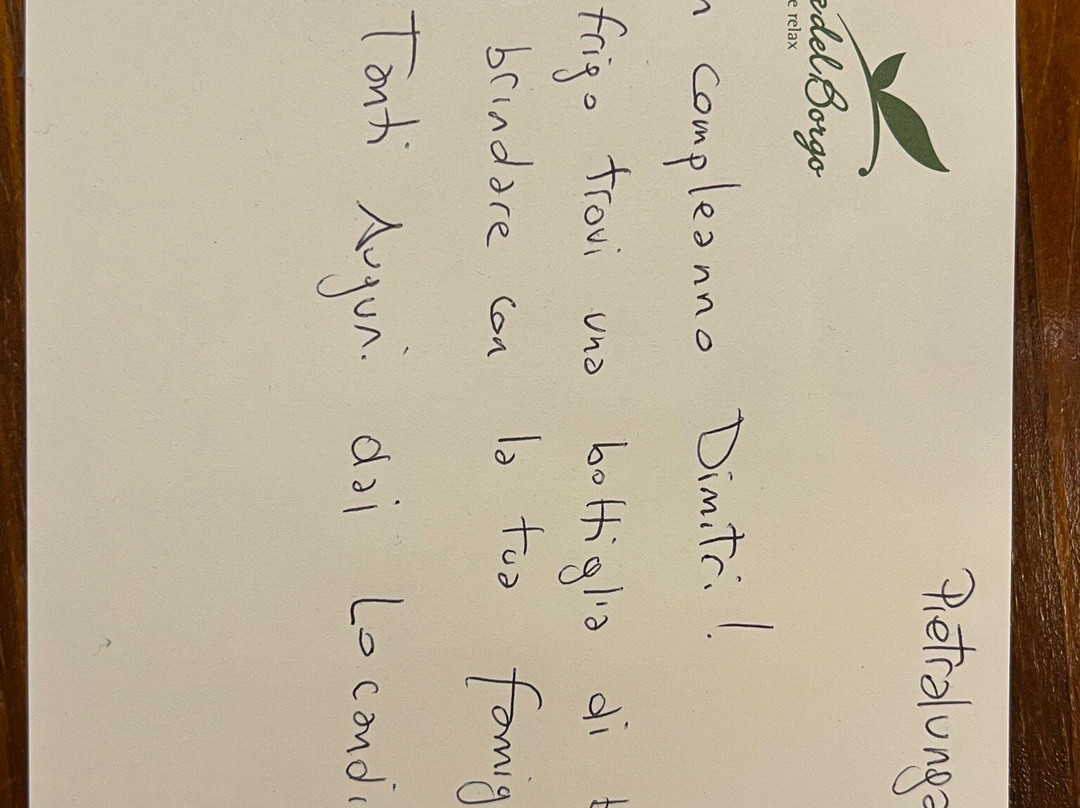 edelBorgo
e relax
Pietralunga
n compleanno Dimitri!
frigo trovi una bottiglia di
brindare con la tua famig
Tanti Auguri dai Locandi